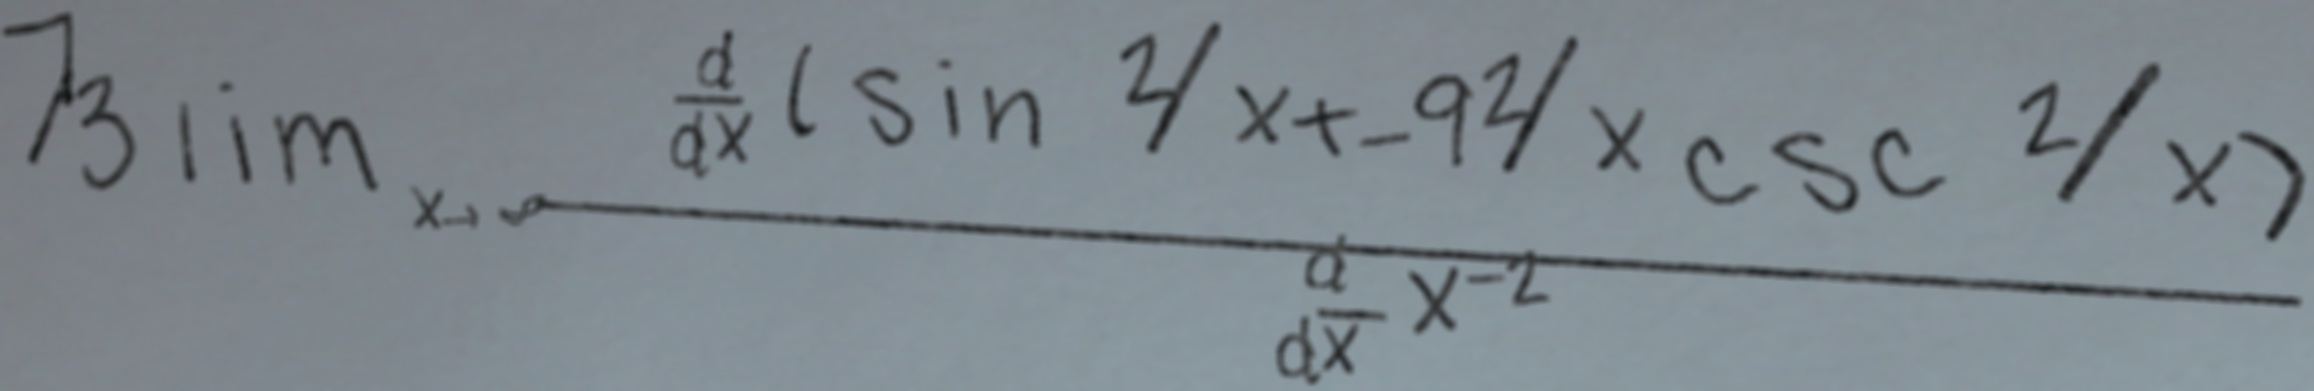 7/3 lim x→∞ d/dx (sin 2/x + -9 2/x csc 2/x)
d/dx x^-2